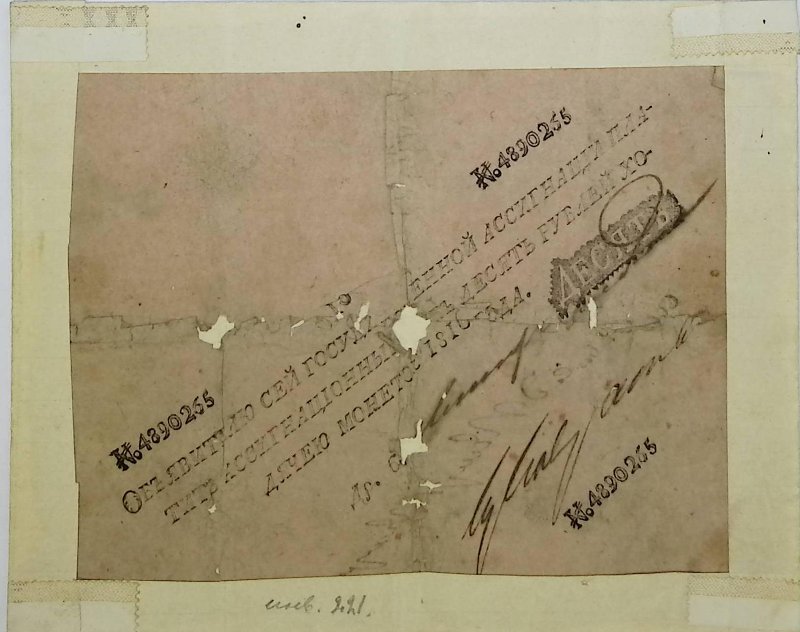 №4890265
№4890265
Объявителю сей государственной ассигнаціи пла-
титъ ассигнаціонный банкъ десять рублей хо-
дячею монетою 1816 года.
ДЕСЯТЬ
№4890265
инв. 221.